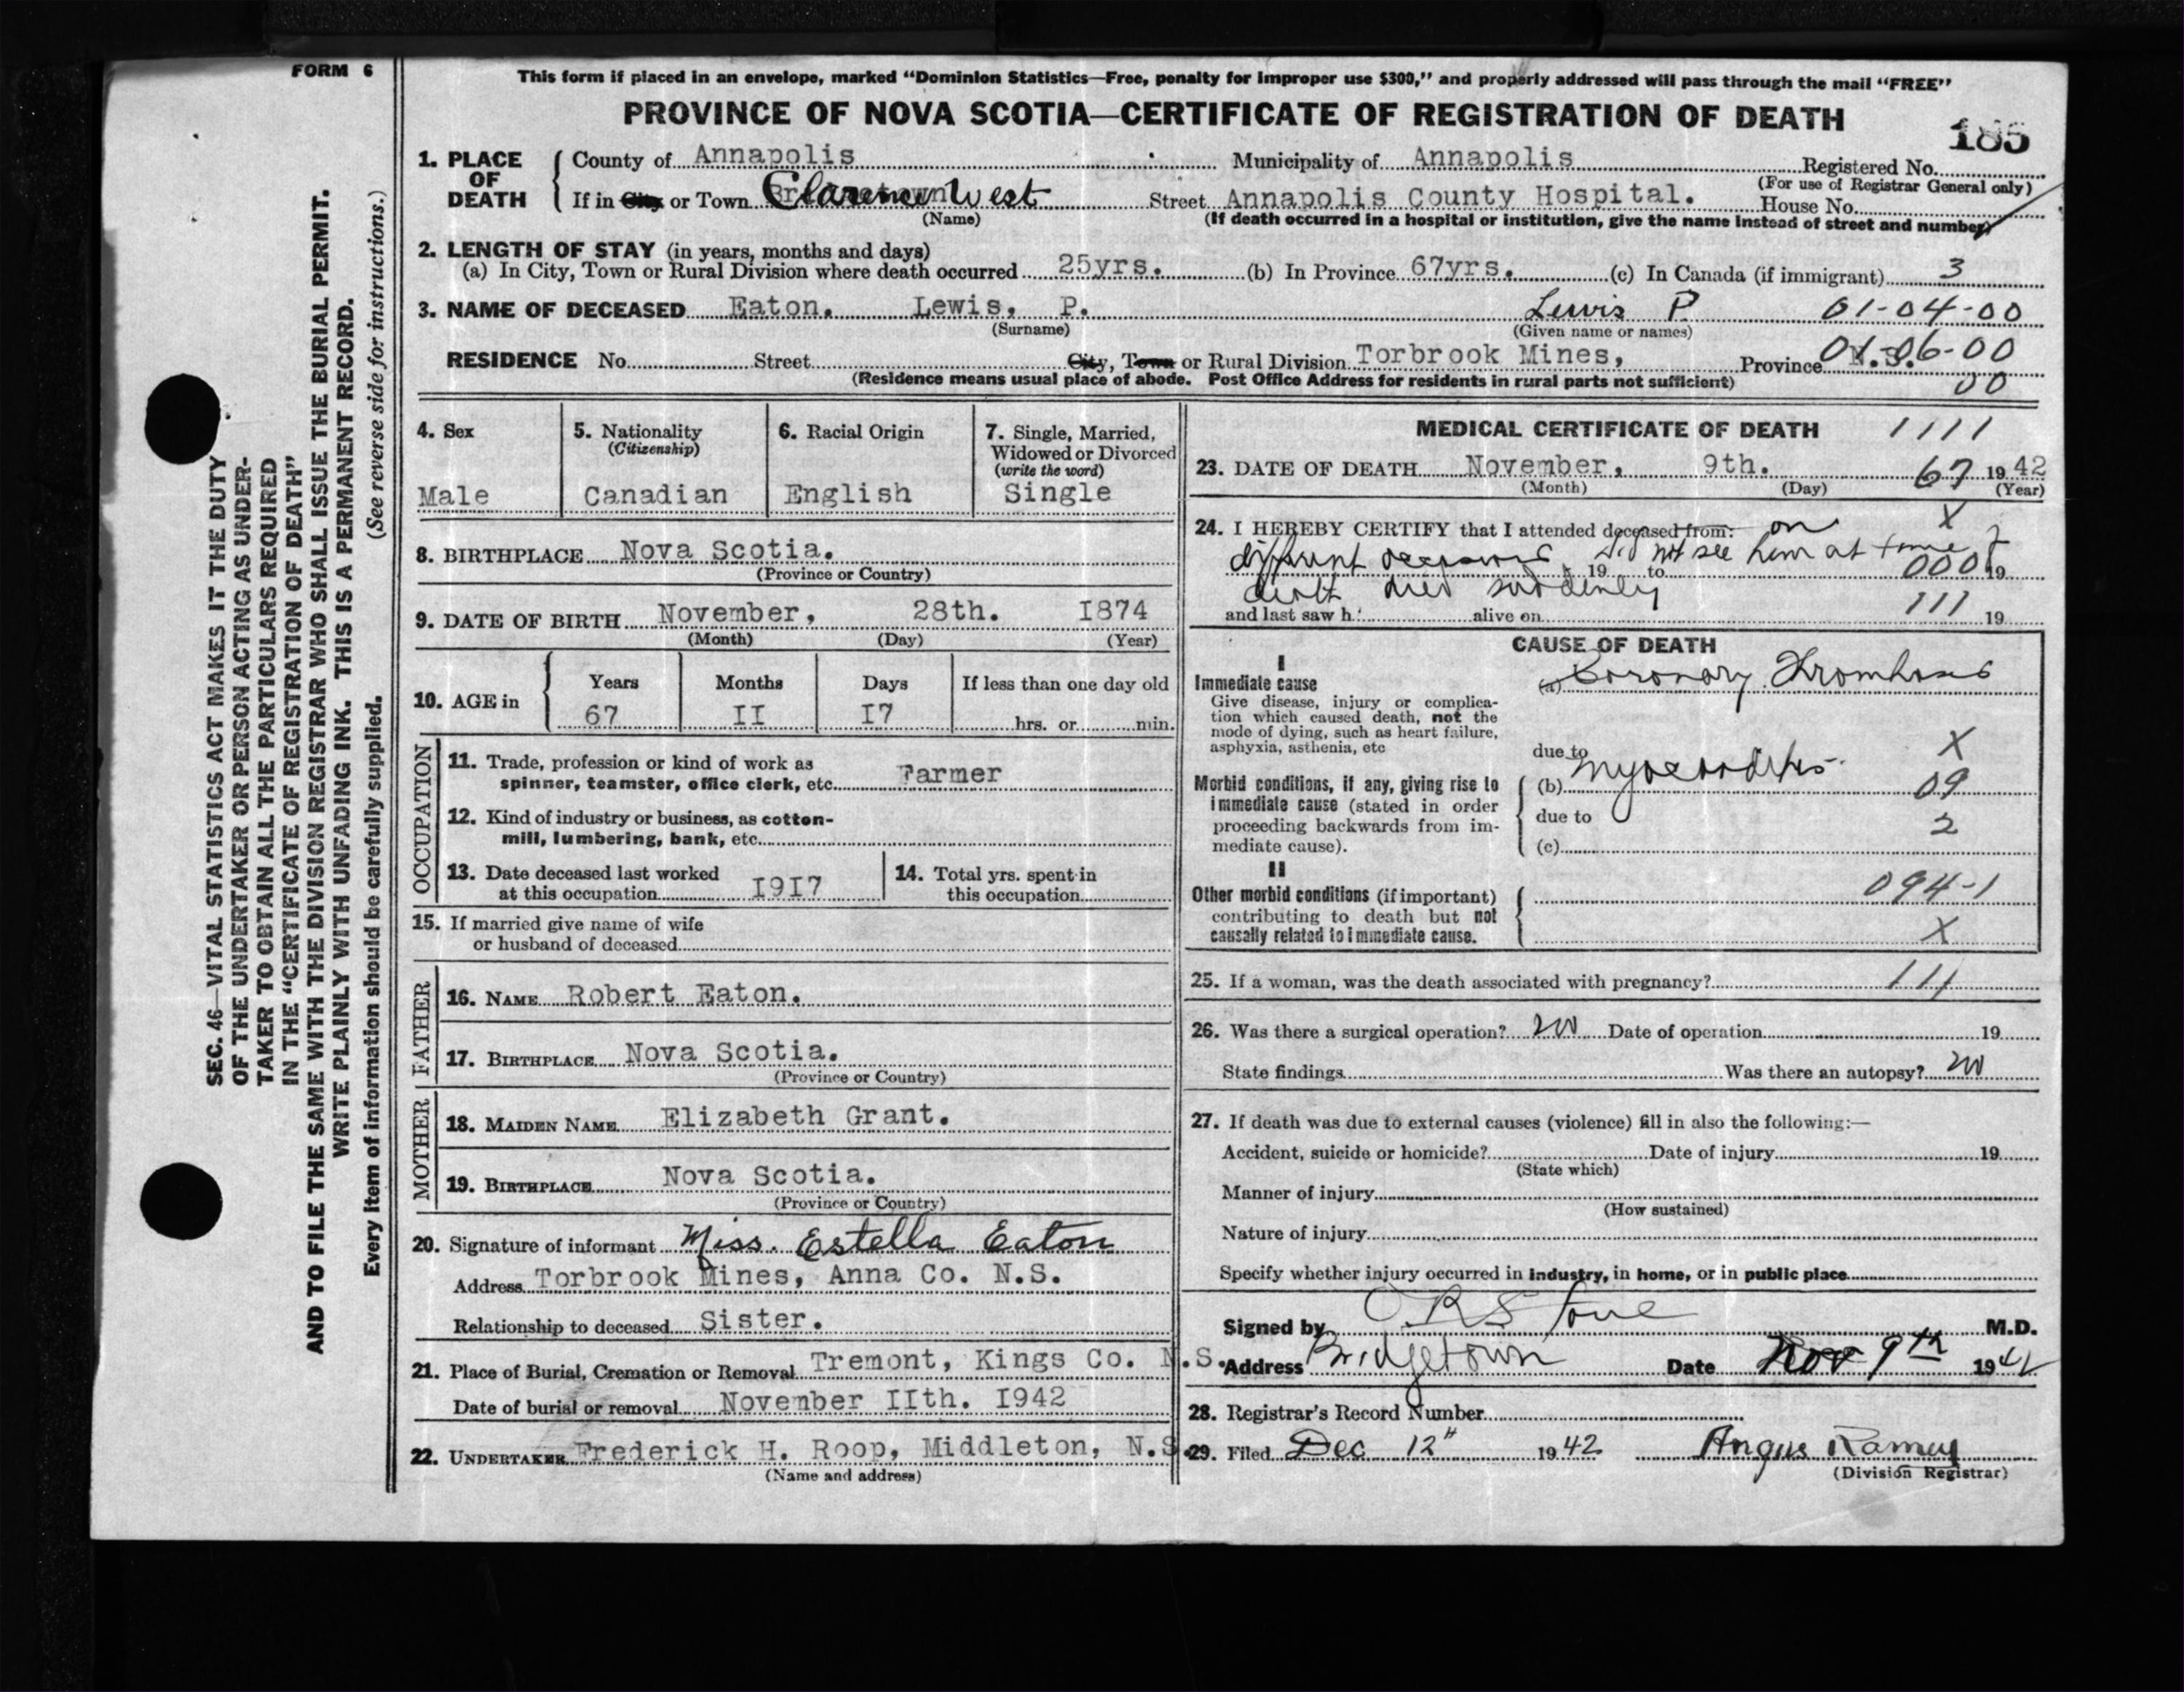 FORM 6
This form if placed in an envelope, marked "Dominion Statistics—Free, penalty for improper use $300," and properly addressed will pass through the mail "FREE"
PROVINCE OF NOVA SCOTIA—CERTIFICATE OF REGISTRATION OF DEATH
185
1. PLACE OF DEATH
County of Annapolis Municipality of Annapolis Registered No.
(For use of Registrar General only)
If in City or Town Clarence West Street Annapolis County Hospital. House No.
(Name) (If death occurred in a hospital or institution, give the name instead of street and number)
2. LENGTH OF STAY (in years, months and days)
(a) In City, Town or Rural Division where death occurred 25yrs. (b) In Province 67yrs. (c) In Canada (if immigrant) 3
3. NAME OF DECEASED Eaton. Lewis, P. Lewis P 01-04-00
(Surname) (Given name or names)
RESIDENCE No. Street City, Town or Rural Division Torbrook Mines, Province N.S. 01-06-00
(Residence means usual place of abode. Post Office Address for residents in rural parts not sufficient) 00
4. Sex
Male
5. Nationality
(Citizenship)
Canadian
6. Racial Origin
English
7. Single, Married,
Widowed or Divorced
(write the word)
Single
8. BIRTHPLACE Nova Scotia.
(Province or Country)
9. DATE OF BIRTH November, 28th. I874
(Month) (Day) (Year)
10. AGE in
Years Months Days If less than one day old
67 II I7 hrs. or min.
OCCUPATION
11. Trade, profession or kind of work as
spinner, teamster, office clerk, etc. Farmer
12. Kind of industry or business, as cotton-
mill, lumbering, bank, etc.
13. Date deceased last worked
at this occupation I9I7
14. Total yrs. spent in
this occupation
15. If married give name of wife
or husband of deceased
FATHER
16. NAME Robert Eaton.
17. BIRTHPLACE Nova Scotia.
(Province or Country)
MOTHER
18. MAIDEN NAME Elizabeth Grant.
19. BIRTHPLACE Nova Scotia.
(Province or Country)
20. Signature of informant Miss. Estella Eaton
Address Torbrook Mines, Anna Co. N.S.
Relationship to deceased Sister.
21. Place of Burial, Cremation or Removal Tremont, Kings Co. N.S.
Date of burial or removal November IIth. I942
22. UNDERTAKER Frederick H. Roop, Middleton, N.S.
(Name and address)
MEDICAL CERTIFICATE OF DEATH 1111
23. DATE OF DEATH November, 9th. 67 1942
(Month) (Day) (Year)
24. I HEREBY CERTIFY that I attended deceased from: on X
different occasions did not see him at time of
19 to 000 19
death died suddenly
and last saw h alive on 111 19
CAUSE OF DEATH
I
Immediate cause
Give disease, injury or complica-
tion which caused death, not the
mode of dying, such as heart failure,
asphyxia, asthenia, etc
(a) Coronary Thrombosis
due to X
Morbid conditions, if any, giving rise to
immediate cause (stated in order
proceeding backwards from im-
mediate cause).
(b) Myocarditis 09
due to 2
(c)
II
Other morbid conditions (if important)
contributing to death but not
causally related to immediate cause.
094-1
X
25. If a woman, was the death associated with pregnancy? 111
26. Was there a surgical operation? no Date of operation 19
State findings Was there an autopsy? no
27. If death was due to external causes (violence) fill in also the following:—
Accident, suicide or homicide? Date of injury 19
(State which)
Manner of injury
(How sustained)
Nature of injury
Specify whether injury occurred in industry, in home, or in public place
Signed by Stone M.D.
Address Bridgetown Date Nov 9th 1942
28. Registrar's Record Number
29. Filed Dec 12" 1942 Angus Ramey
(Division Registrar)
SEC. 46—VITAL STATISTICS ACT MAKES IT THE DUTY
OF THE UNDERTAKER OR PERSON ACTING AS UNDER-
TAKER TO OBTAIN ALL THE PARTICULARS REQUIRED
IN THE "CERTIFICATE OF REGISTRATION OF DEATH"
AND TO FILE THE SAME WITH THE DIVISION REGISTRAR WHO SHALL ISSUE THE BURIAL PERMIT.
WRITE PLAINLY WITH UNFADING INK. THIS IS A PERMANENT RECORD.
Every item of information should be carefully supplied. (See reverse side for instructions.)